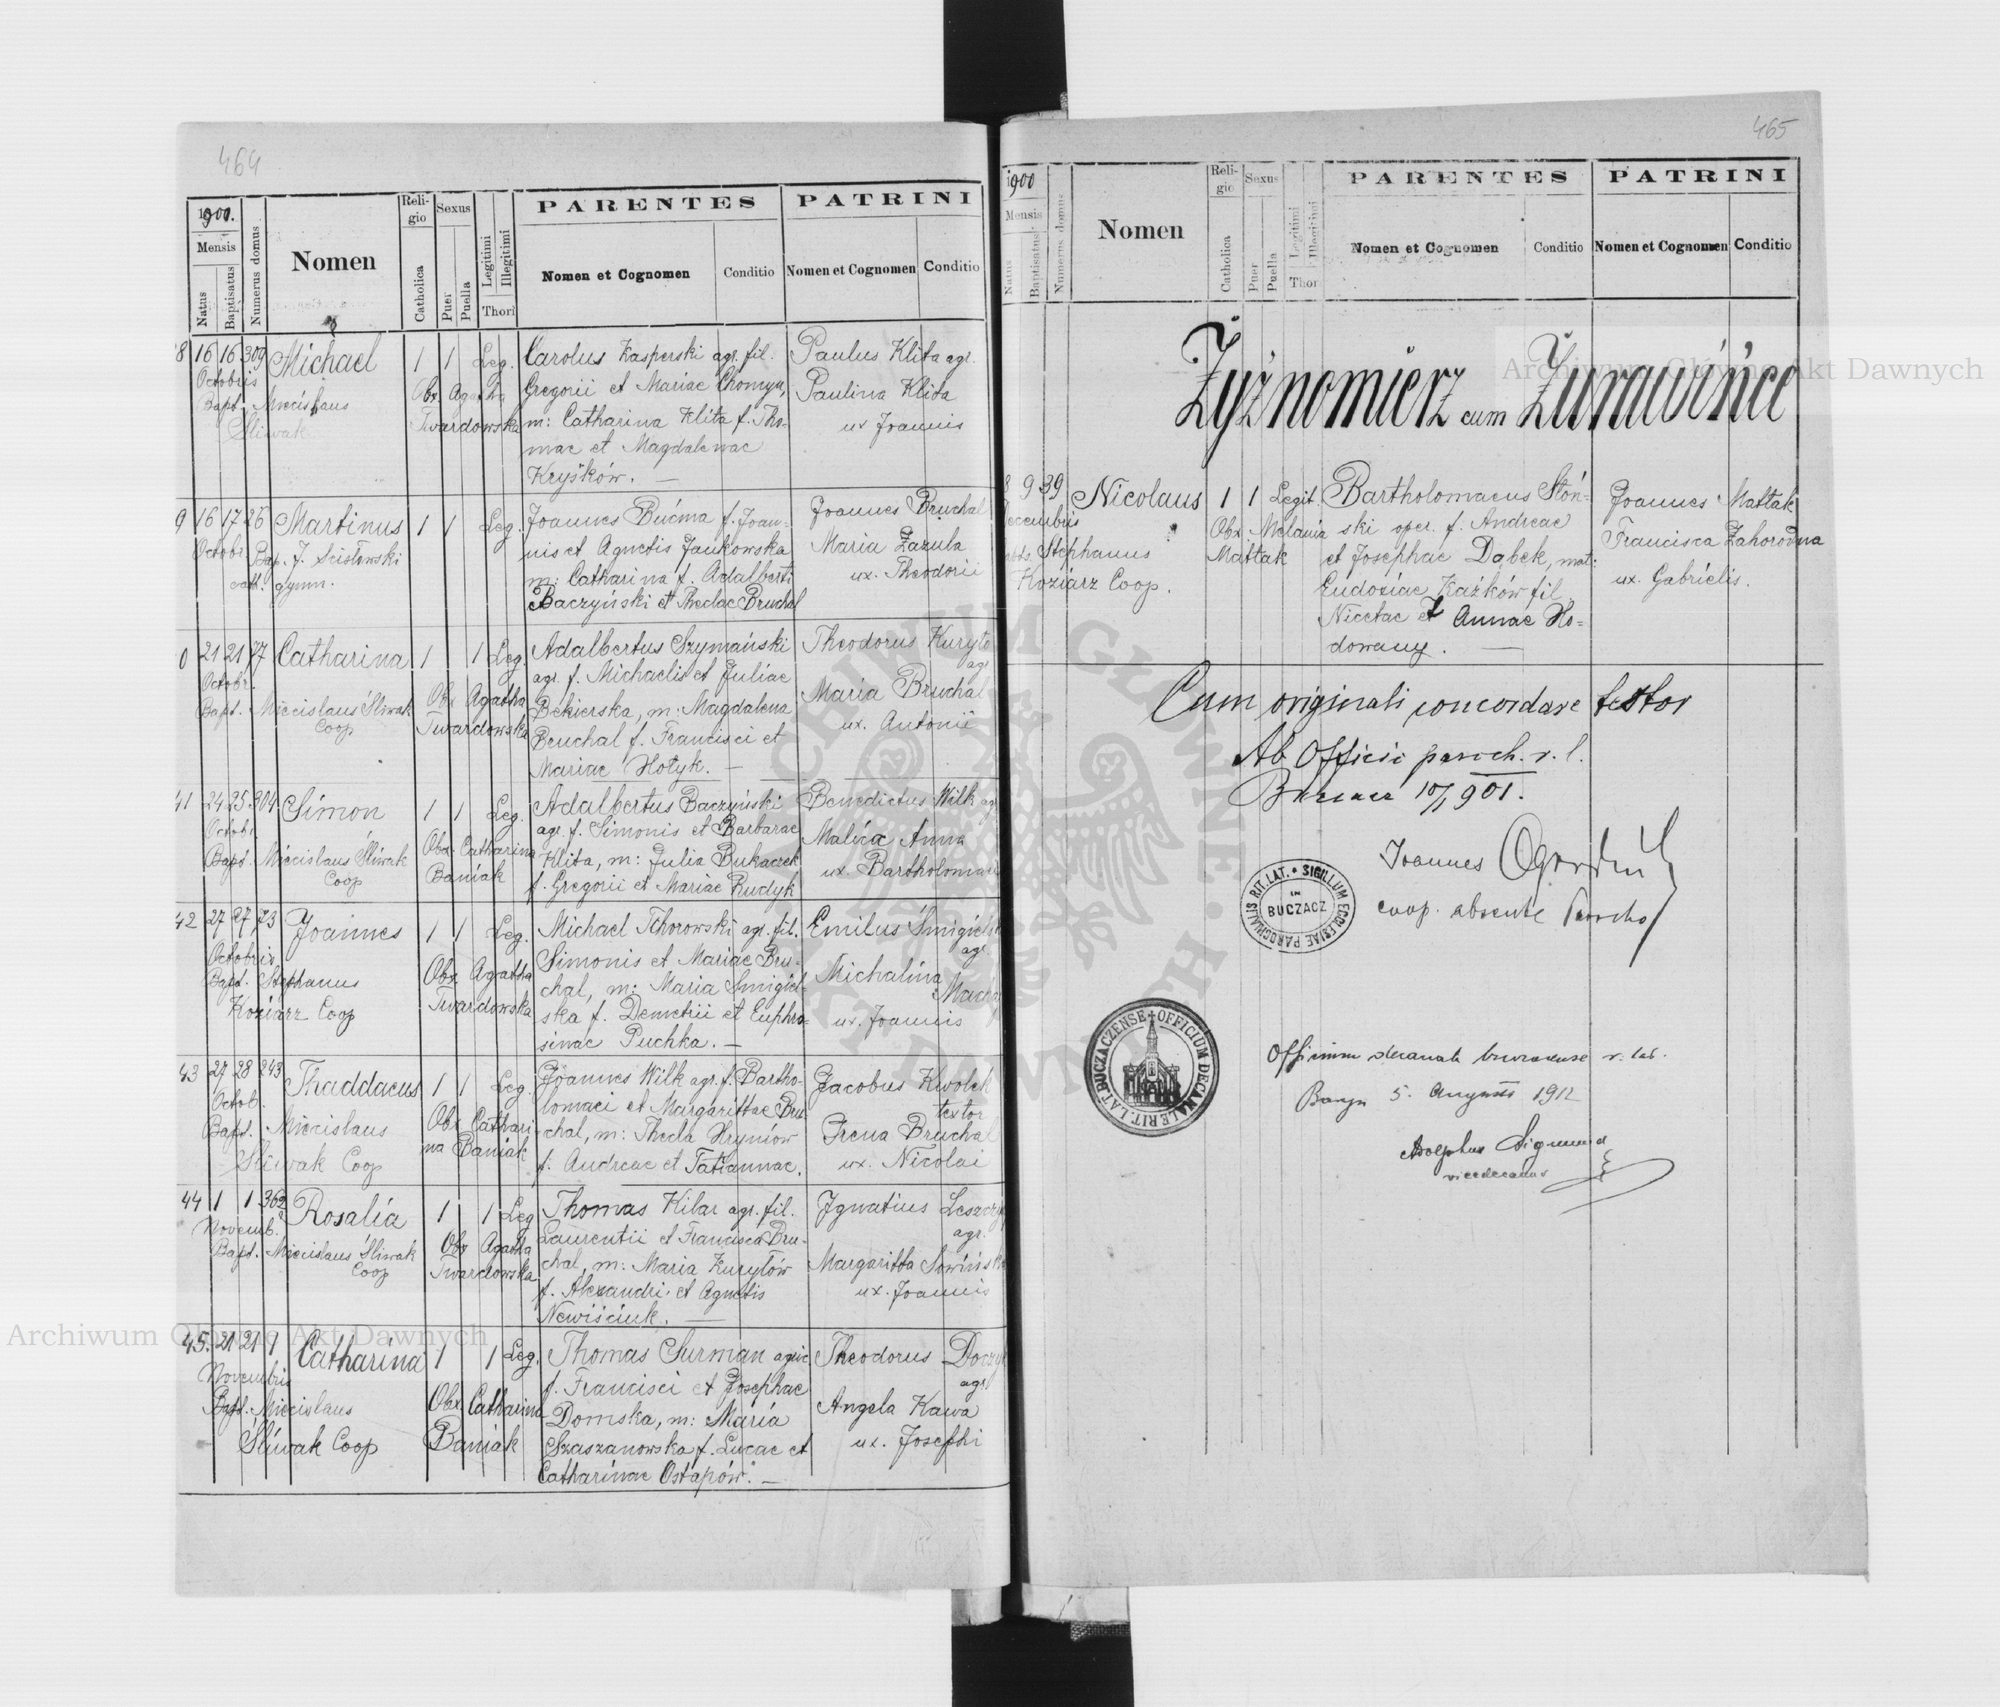 464
1900.
Mensis
Natus
Baptisatus
Numerus domus
Nomen
Religio
Catholica
Sexus
Puer
Puella
Legitimi
Illegitimi
Thori
PARENTES
Nomen et Cognomen
Conditio
PATRINI
Nomen et Cognomen
Conditio
8 16 16 309 Michael 1 1 Leg. Carolus Kasperski agr. fil. Paulus Klita agr.
Octobris Obx. Agatha Gregorii et Mariae Chomyn, Paulina Klita
Bapt. Miecislaus Twardowska m: Catharina Klita f. Tho- ux Joannis
Śliwak mae et Magdalenae
Kryśków. —
9 16 17 26 Martinus 1 1 Leg. Joannes Bućma f. Joan- Joannes Bruchal
Octobr. nis et Agnetis Jankowska Maria Zazula
Bap. J. Scisłowski m: Catharina f. Adalberti ux. Theodorii
cath. gymn. Baczyński et Theclae Bruchal
0 21 21 77 Catharina 1 1 Leg. Adalbertus Szymański Theodorus Kuryło
Octobr. agr. f. Michaelis et Juliae agr
Bapt. Miecislaus Śliwak Obx Agatha Bekierska, m: Magdalena Maria Bruchal
Coop Twardowska Bruchal f. Francisci et ux. Antonii
Mariae Hotyk. —
41 24 25 304 Simon 1 1 Leg. Adalbertus Baczyński Benedictus Wilk agr
Octobr. agr. f. Simonis et Barbarae Malica Anna
Bapt. Miecislaus Śliwak Obx Catharina Klita, m: Julia Bukaczek ux. Bartholomaei
Coop Baniak f. Gregorii et Mariae Rudyk
42 27 27 73 Joannes 1 1 Leg. Michael Tchorowski agr. fil. Emilus
Octobris Simonis et Mariae Bru- agr.
Bapt. Stephanus Obx Agatha chal, m: Maria Smigiel- Michalina
Koziarz Coop Twardowska ska f. Demetrii et Euphro- ux. Joannis
sinae Puchka. —
43 27 28 243 Thaddaeus 1 1 Leg. Joannes Wilk agr. f. Bartho- Jacobus Kwolek
Octob. lomaei et Margarittae Bru- textor
Bapt. Miecislaus Obx Cathari- chal, m: Thecla Hryniów Irena Bruchal
Śliwak Coop na Baniak f. Andreae et Tatiannae. ux. Nicolai
44 1 1 362 Rosalia 1 1 Leg Thomas Kilar agr. fil. Ignatius
Novemb. Laurentii et Francisca Bru- agr.
Bapt. Miecislaus Śliwak Obx Agatha chal, m: Maria Kuryłów Margaritta Sowińska
Coop Twardowska f. Alexandri et Agnetis ux. Joannis
Newiściuk. —
45. 21 21 9 Catharina 1 1 Leg. Thomas Surman agric Theodorus
Novembris f. Francisci et Josephae agr
Bapt. Miecislaus Obx Catharina Domska, m: Maria Angela Kawa
Śliwak Coop Baniak Szaszanowska f. Lucae et ux. Josephi
Catharinae Ostapów. —
465
1900
Mensis
Natus
Baptisatus
Numerus domus
Nomen
Religio
Catholica
Sexus
Puer
Puella
Legitimi
Illegitimi
Thori
PARENTES
Nomen et Cognomen
Conditio
PATRINI
Nomen et Cognomen
Conditio
Żyżnomierz cum Żurawińce
8 9 39 Nicolaus 1 1 Legit. Bartholomaeus Słoń- Joannes Mattak
Decembris Obx Melania ski oper. f. Andreae Francisca Zahorodna
Stephanus Mattak et Josephae Dąbek, mat: ux. Gabrielis.
Koziarz Coop. Eudoxiae Kaźków fil
Nicetae et Annae Ho-
dowany. —
Cum originali concordare testor
Ab Officio paroch. r. l.
Buczacz 10/1 901.
Joannes
coop. absente Parocho
SIGILLUM ECCLESIAE PAROCHIALIS RIT. LAT.
IN
BUCZACZ
OFFICIUM DECANALE RIT. LAT. BUCZACZENSE
Officium decanale buczacense r. lat.
5. Augusti 1912
Adolphus Sigmund
vicedecanus
Archiwum Główne Akt Dawnych
Archiwum Główne Akt Dawnych
ARCHIWUM GŁÓWNE AKT DAWNYCH